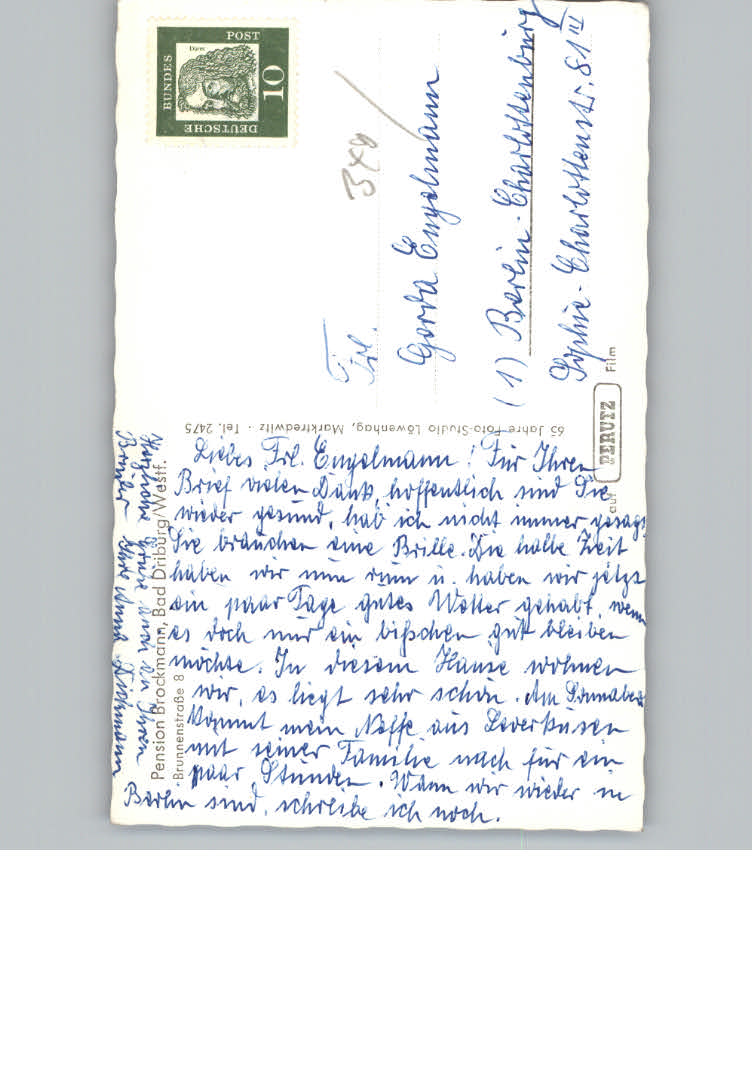 Liebes Frl. Engelmann! Für Ihren
Brief vielen Dank, hoffentlich sind Sie
wieder gesund, hab ich nicht immer gesagt
Sie brauchen eine Brille. Die halbe Zeit
haben wir nun rum u. haben wir jetzt
ein paar Tage gutes Wetter gehabt, wenn
es doch nur ein bißchen gut bleiben
möchte. In diesem Hause wohnen
wir, es liegt sehr schön. Am Sonnabend
kommt mein Neffe aus Leverkusen
mit seiner Familie nach für ein
paar Stunden. Wann wir wieder in
Berlin sind, schreibe ich noch.
Herzliche Grüße auch an Ihren
Bruder Ihre Anna
Pension Brockmann, Bad Driburg/Westf.
Brunnenstraße 8
65 Jahre Foto-Studio Löwenhag, Marktredwitz · Tel. 2475
auf PERUTZ Film
DEUTSCHE BUNDESPOST
10
Dürer
Frl.
Gerda Engelmann
(1) Berlin-Charlottenburg
Sophie-Charlottenstr. 81 III